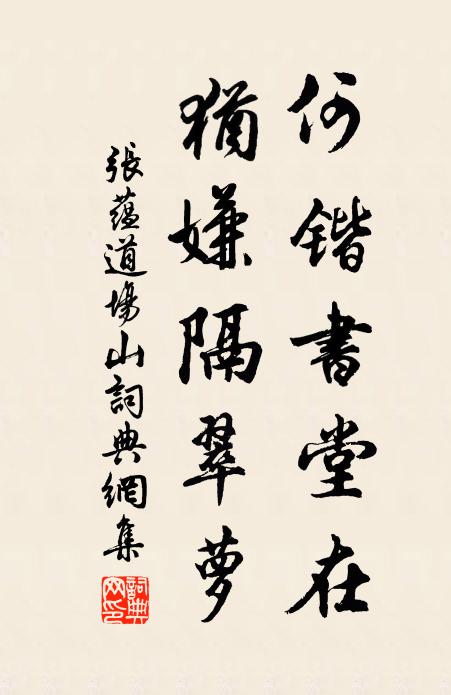 何鍇書堂在
猶嫌隔翠蘿
張蘊道場山詞典網集
詞典网印